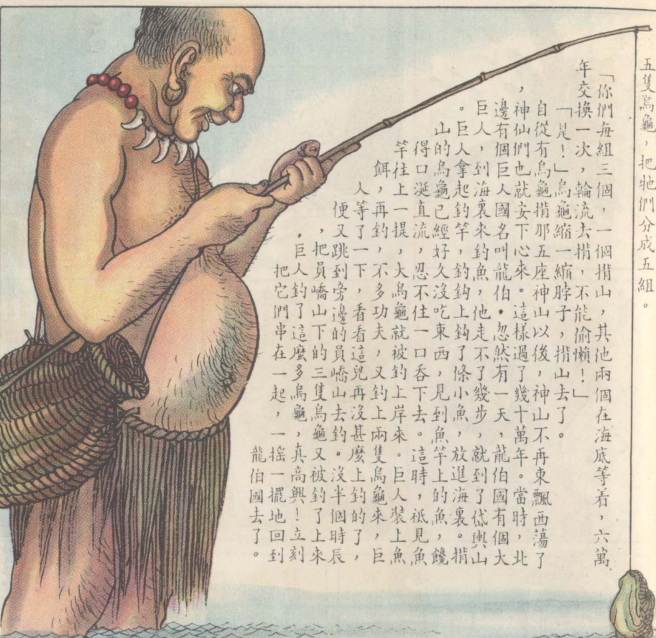 五隻烏龜，把牠們分成五組。
「你們每組三個，一個揹山，其他兩個在海底等着，六萬
年交換一次，輪流去揹，不能偷懶！」
「是！」烏龜縮一縮脖子，揹山去了。
自從有烏龜揹那五座神山以後，神山不再東飄西蕩了
，神仙們也就安下心來。這樣過了幾十萬年。當時，北
邊有個巨人國名叫龍伯。忽然有一天，龍伯國有個大
巨人，到海裏來釣魚，他走不了幾步，就到了岱輿山
。巨人拿起釣竿，釣鈎上鈎了條小魚，放進海裏。揹
山的烏龜已經好久沒吃東西，見到魚竿上的魚，饞
得口涎直流，忍不住一口吞下去。這時，祇見魚
竿往上一提，大烏龜就被釣上岸來。巨人裝上魚
餌，再釣，不多功夫，又釣上兩隻烏龜來，巨
人等了一下，看看這兒再沒甚麼上釣的了，
便又跳到旁邊的員嶠山去釣。沒半個時辰
，把員嶠山下的三隻烏龜又被釣了上來
。巨人釣了這麼多烏龜，真高興！立刻
把它們串在一起，一搖一擺地回到
龍伯國去了。